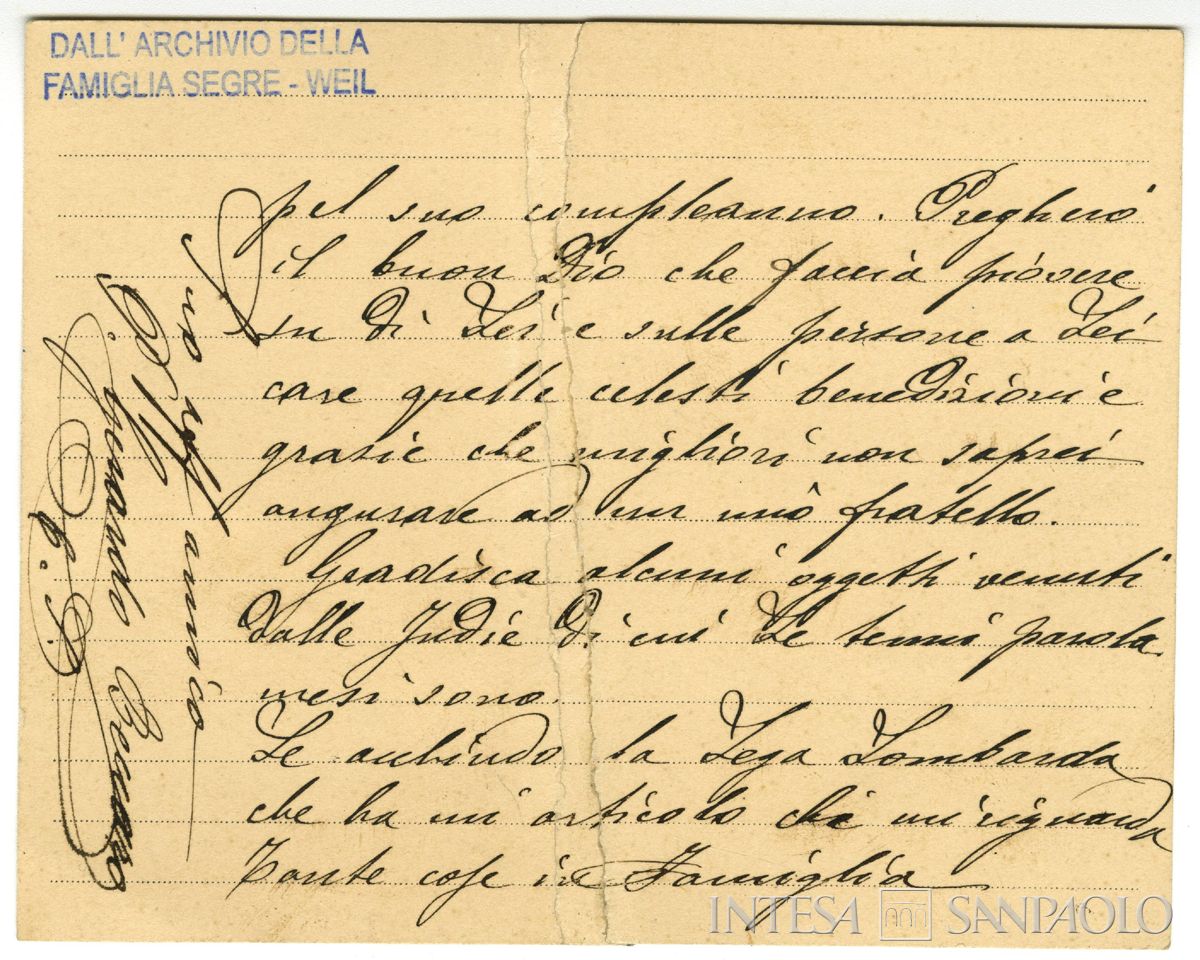 DALL' ARCHIVIO DELLA
FAMIGLIA SEGRE - WEIL
pel suo compleanno. Pregherò
il buon Dio che faccia piovere
su di Lei e sulle persone a Lei
care quelle celesti benedizioni e
grazie che migliori non saprei
augurare ad un mio fratello.
Gradisca alcuni oggetti venuti
dalle Indie di cui Le tenni parola
mesi sono.
Le accludo la Lega Lombarda
che ha un articolo che mi riguarda
Tante cose in Famiglia
Suo aff amico
INTESA SANPAOLO